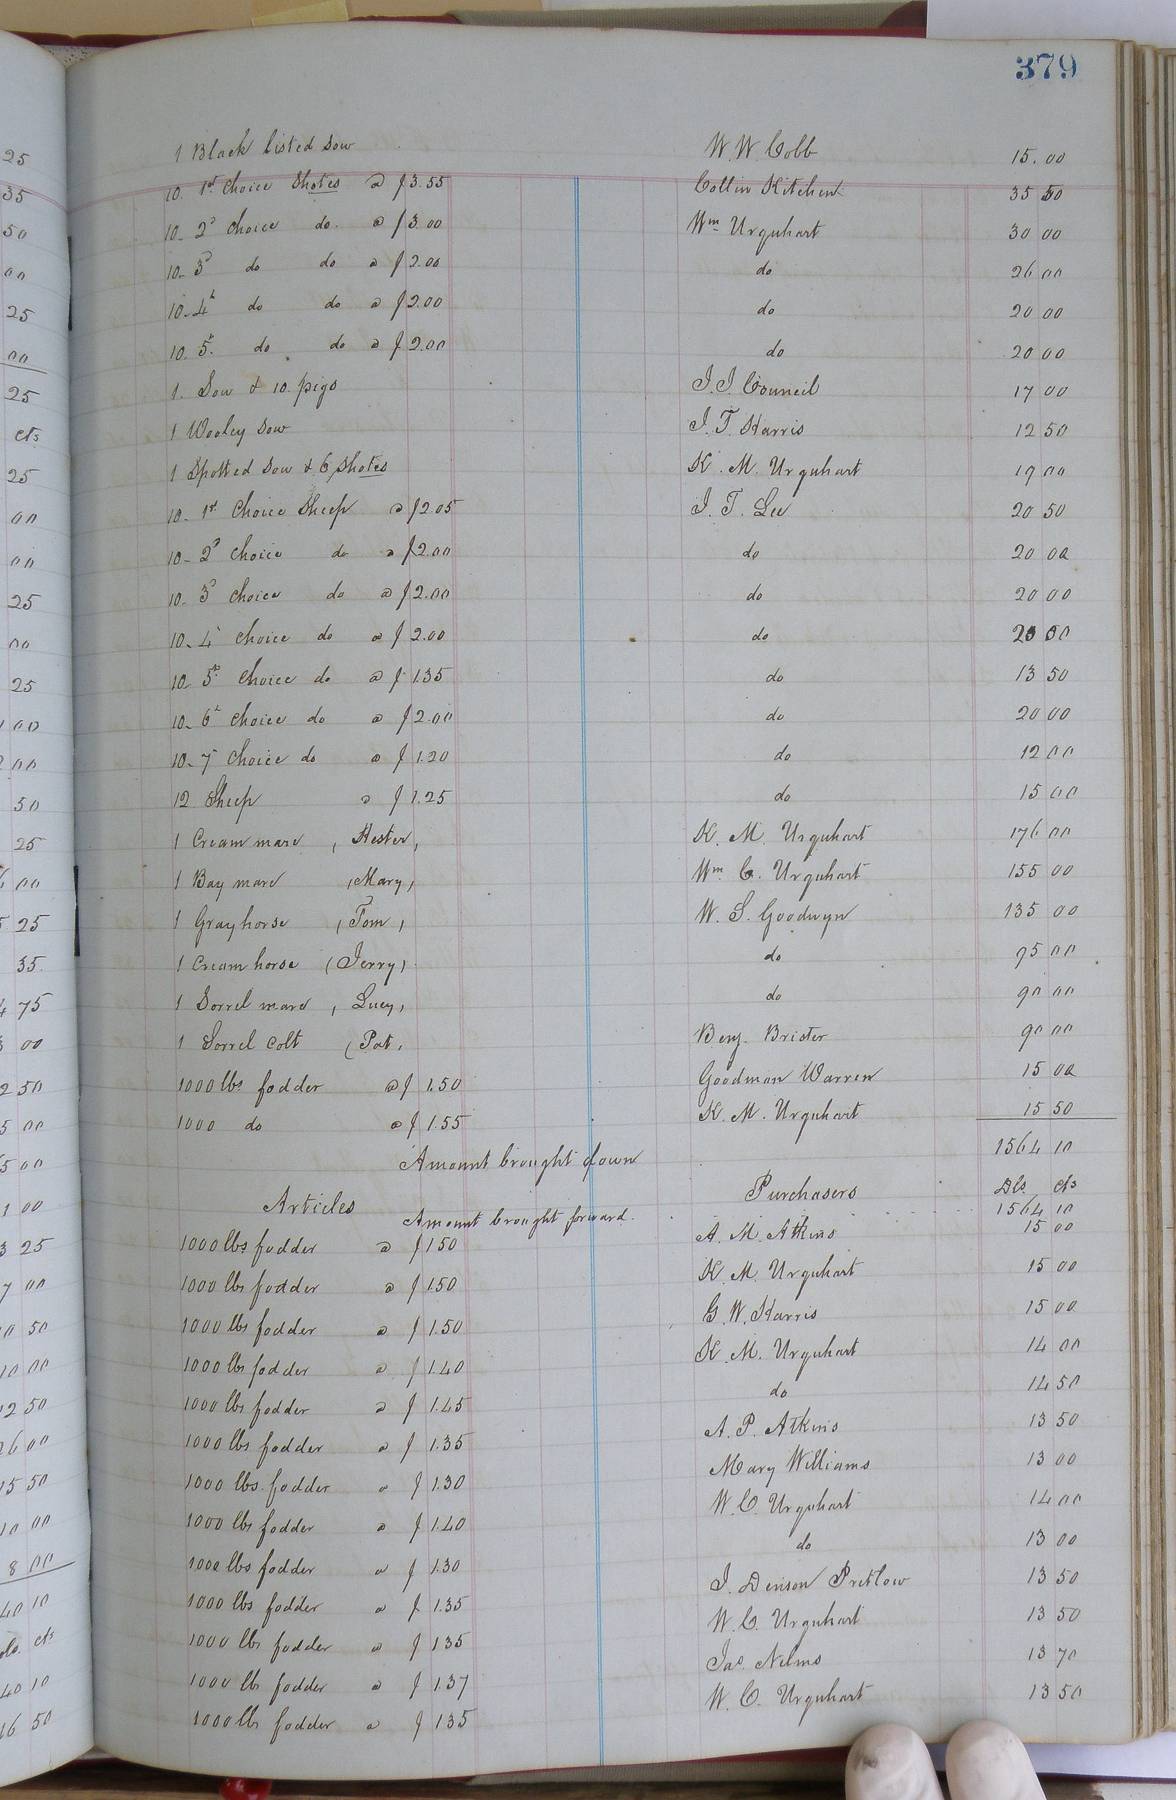 379
1 Black listed Sow W. W. Cobb 15.00
10. 1st Choice Shotes @ $3.55 Collin Kitchen 35 50
10. 2d Choice do. @ $3.00 Wm Urquhart 30 00
10. 3d do do @ $2.00 do 26 00
10. 4th do do @ $2.00 do 20 00
10. 5th do do @ $2.00 do 20 00
1. Sow & 10 pigs J. J. Council 17 00
1 Wooley Sow J. T. Harris 12 50
1 Spotted Sow & 6 Shotes K. M. Urquhart 19 00
10. 1st Choice Sheep @ $2.05 J. T. Lee 20 50
10. 2d Choice do @ $2.00 do 20 00
10. 3d Choice do @ $2.00 do 20 00
10. 4th Choice do @ $2.00 do 20 00
10. 5th Choice do @ $1.35 do 13 50
10. 6th Choice do @ $2.00 do 20 00
10. 7th Choice do @ $1.20 do 12 00
12 Sheep @ $1.25 do 15 00
1 Cream mare (Hester) K. M. Urquhart 176 00
1 Bay mare (Mary) Wm C. Urquhart 155 00
1 Gray horse (Tom) W. S. Goodwyn 135 00
1 Cream horse (Jerry) do 95 00
1 Sorrel mare (Lucy) do 90 00
1 Sorrel Colt (Pat) Benj. Brister 90 00
1000 lbs fodder @ $1.50 Goodman Warren 15 00
1000 do @ $1.55 K. M. Urquhart 15 50
Amount brought down 1564 10
Articles Purchasers Dls cts
Amount brought forward. 1564 10
1000 lbs fodder @ $1.50 A. M. Atkins 15 00
1000 lbs fodder @ $1.50 K. M. Urquhart 15 00
1000 lbs fodder @ $1.50 G. W. Harris 15 00
1000 lbs fodder @ $1.40 K. M. Urquhart 14 00
1000 lbs fodder @ $1.45 do 14 50
1000 lbs fodder @ $1.35 A. P. Atkins 13 50
1000 lbs. fodder @ $1.30 Mary Williams 13 00
1000 lbs fodder @ $1.40 W. C. Urquhart 14 00
1000 lbs fodder @ $1.30 do 13 00
1000 lbs fodder @ $1.35 J. Denson Pretlow 13 50
1000 lbs fodder @ $1.35 W. C. Urquhart 13 50
1000 lb fodder @ $1.37 Jas. Nelms 13 70
1000 lbs fodder @ $1.35 W. C. Urquhart 13 50